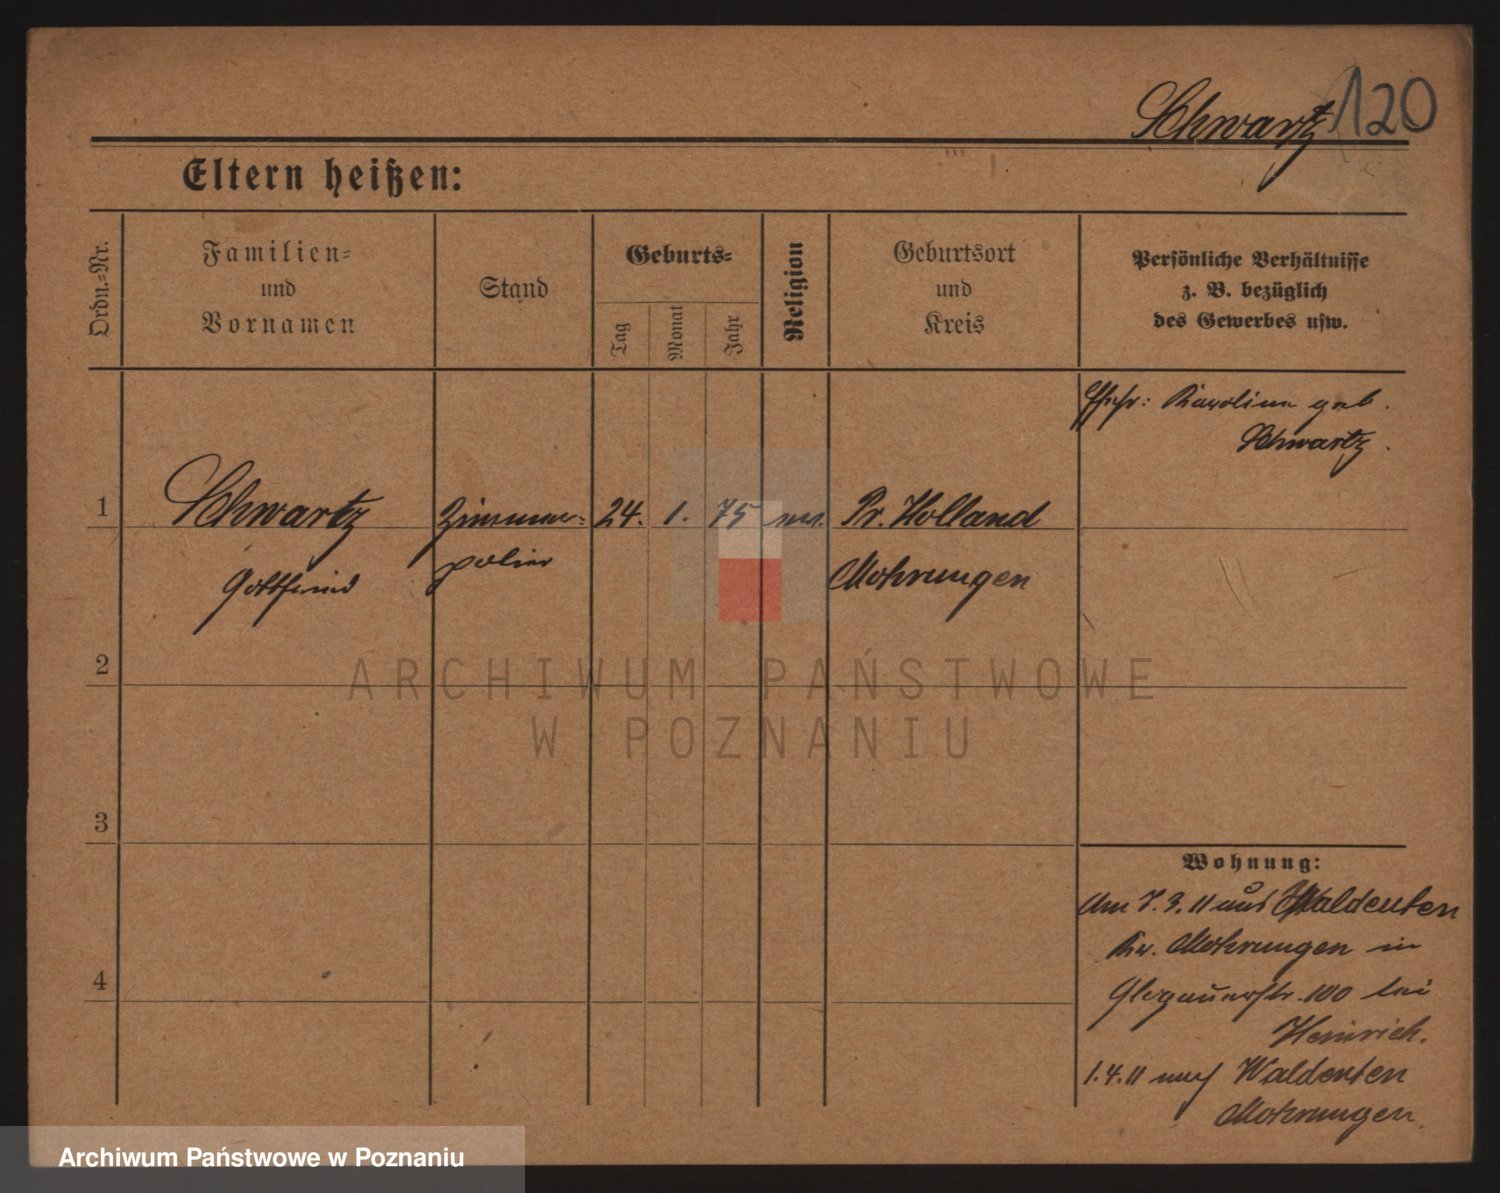 Schwartz 120
Eltern heißen:
Ordn.-Nr.
Familien-
und
Vornamen
Stand
Geburts-
Tag
Monat
Jahr
Religion
Geburtsort
und
Kreis
Persönliche Verhältnisse
z. B. bezüglich
des Gewerbes usw.
Karoline geb.
Schwartz.
1 Schwartz Zimmer- 24. 1. 75 Pr. Holland
Gottfried polier Mohrungen
2
3
4
Wohnung:
Am 7.3.11 aus Waldeuten
Kr. Mohrungen in
Glogauerstr. 100 bei
Heinrich.
1.4.11 nach Waldeuten
Mohrungen.
ARCHIWUM PAŃSTWOWE
W POZNANIU
Archiwum Państwowe w Poznaniu